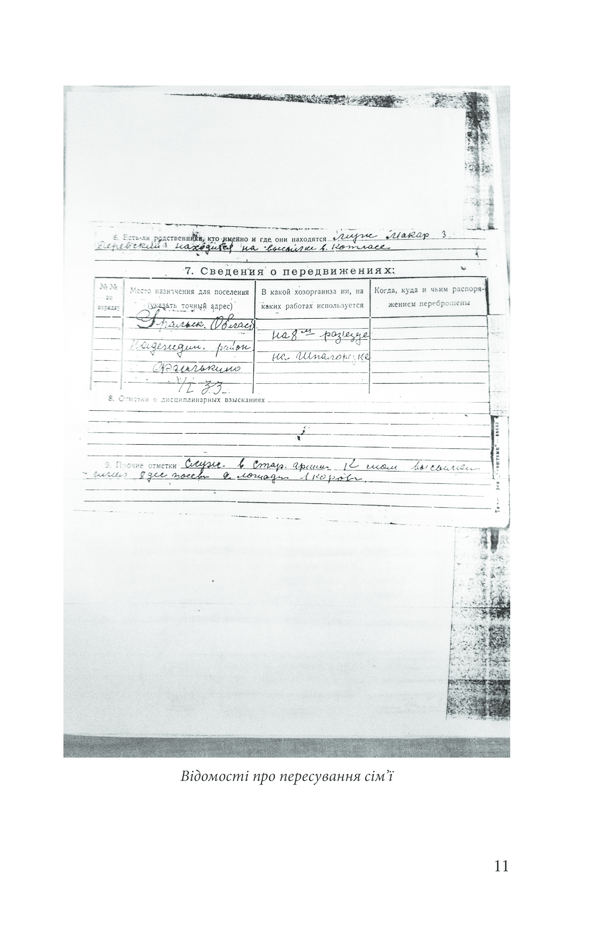 6. Есть-ли родственники, кто именно и где они находятся муж Макар З.
находится на высылке в Котласе
7. Сведения о передвижениях:
№№ по порядку
Место назначения для поселения (указать точный адрес)
В какой хозорганиза ии, на каких работах используется
Когда, куда и чьим распоряжением переброшены
Уральск. Область
Надеждин. район
на 8 м разъезде
на
8. Отметки о дисциплинарных взысканиях
9. Прочие отметки Служ. в стар. армии К мом высылки
имел 8 дес посева 2 лошади 1 корову
Відомості про пересування сім’ї
11